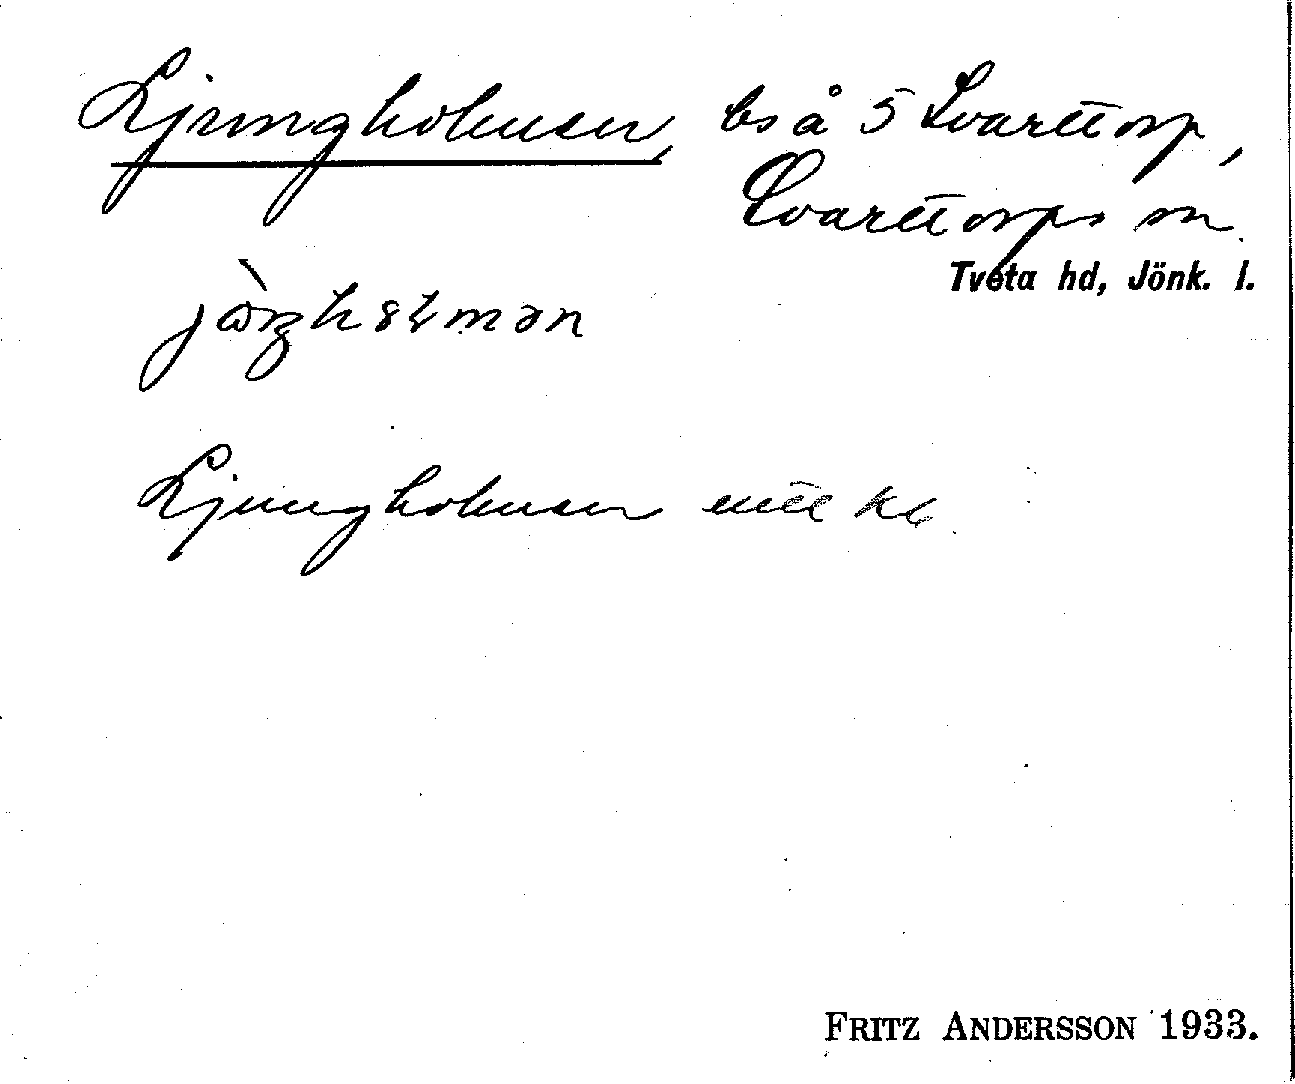 Ljungholmen, bs å 5 Svarttorp,
Svarttorps sn.
Tveta hd, Jönk. l.
Ljungholmen
FRITZ ANDERSSON 1933.